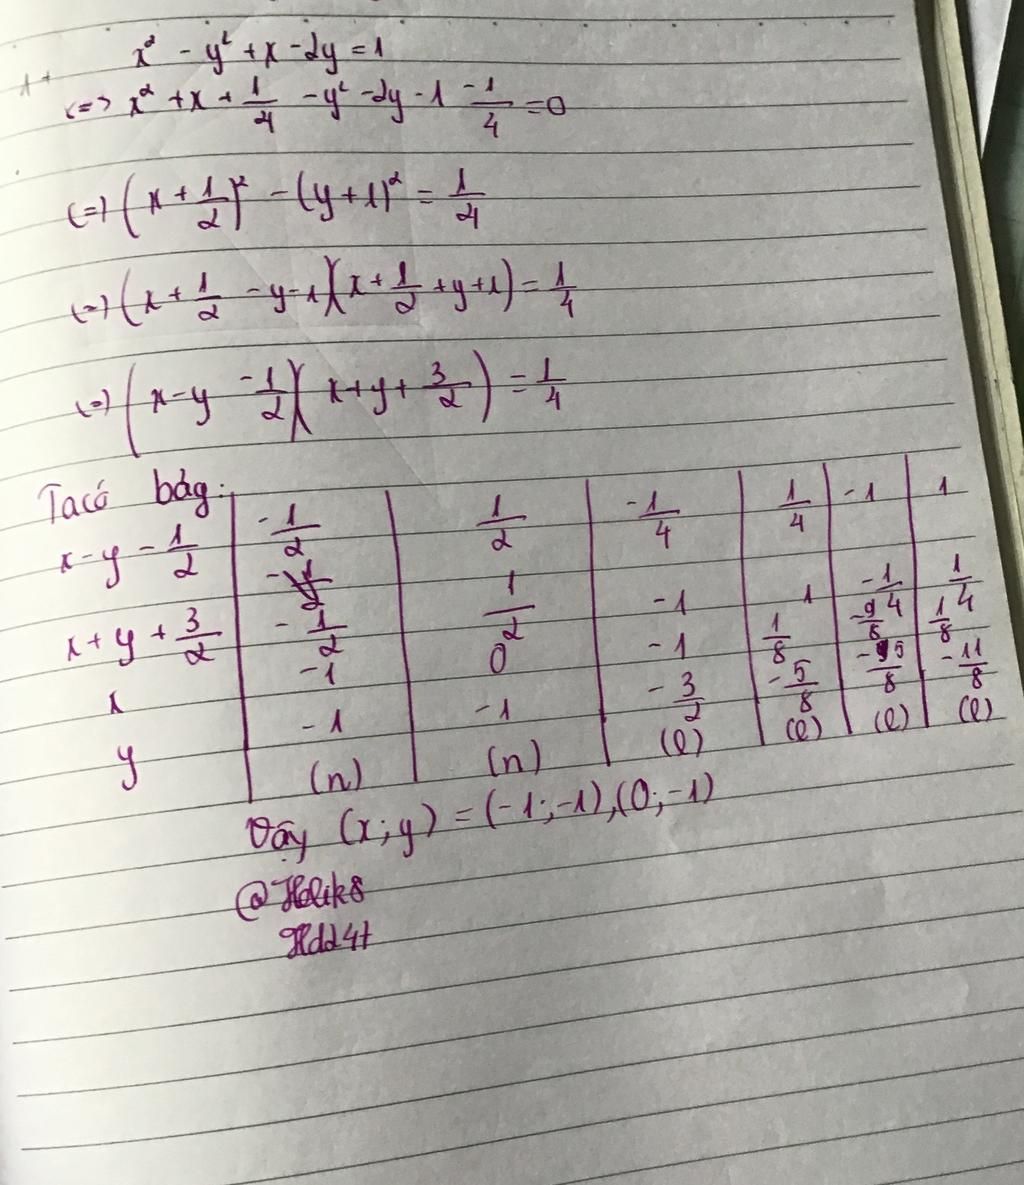 x² - y² + x - 2y = 1
<=> x² + x + 1/4 - y² - 2y - 1 - 1/4 = 0
(=) (x + 1/2)² - (y + 1)² = 1/4
(=) (x + 1/2 - y - 1)(x + 1/2 + y + 1) = 1/4
(=) (x - y - 1/2)(x + y + 3/2) = 1/4
Ta có bảg:
x - y - 1/2 | -1/2 | 1/2 | -1/4 | 1/4 | -1 | 1
x + y + 3/2 | -1/2 | 1/2 | -1 | 1 | -1/4 | 1/4
x | -1 | 0 | -1 | 1/8 | -9/8 | 1/8
y | -1 | -1 | -3/2 | -5/8 | -5/8 | -11/8
(n) | (n) | (l) | (l) | (l) | (l)
Vậy (x; y) = (-1; -1), (0; -1)